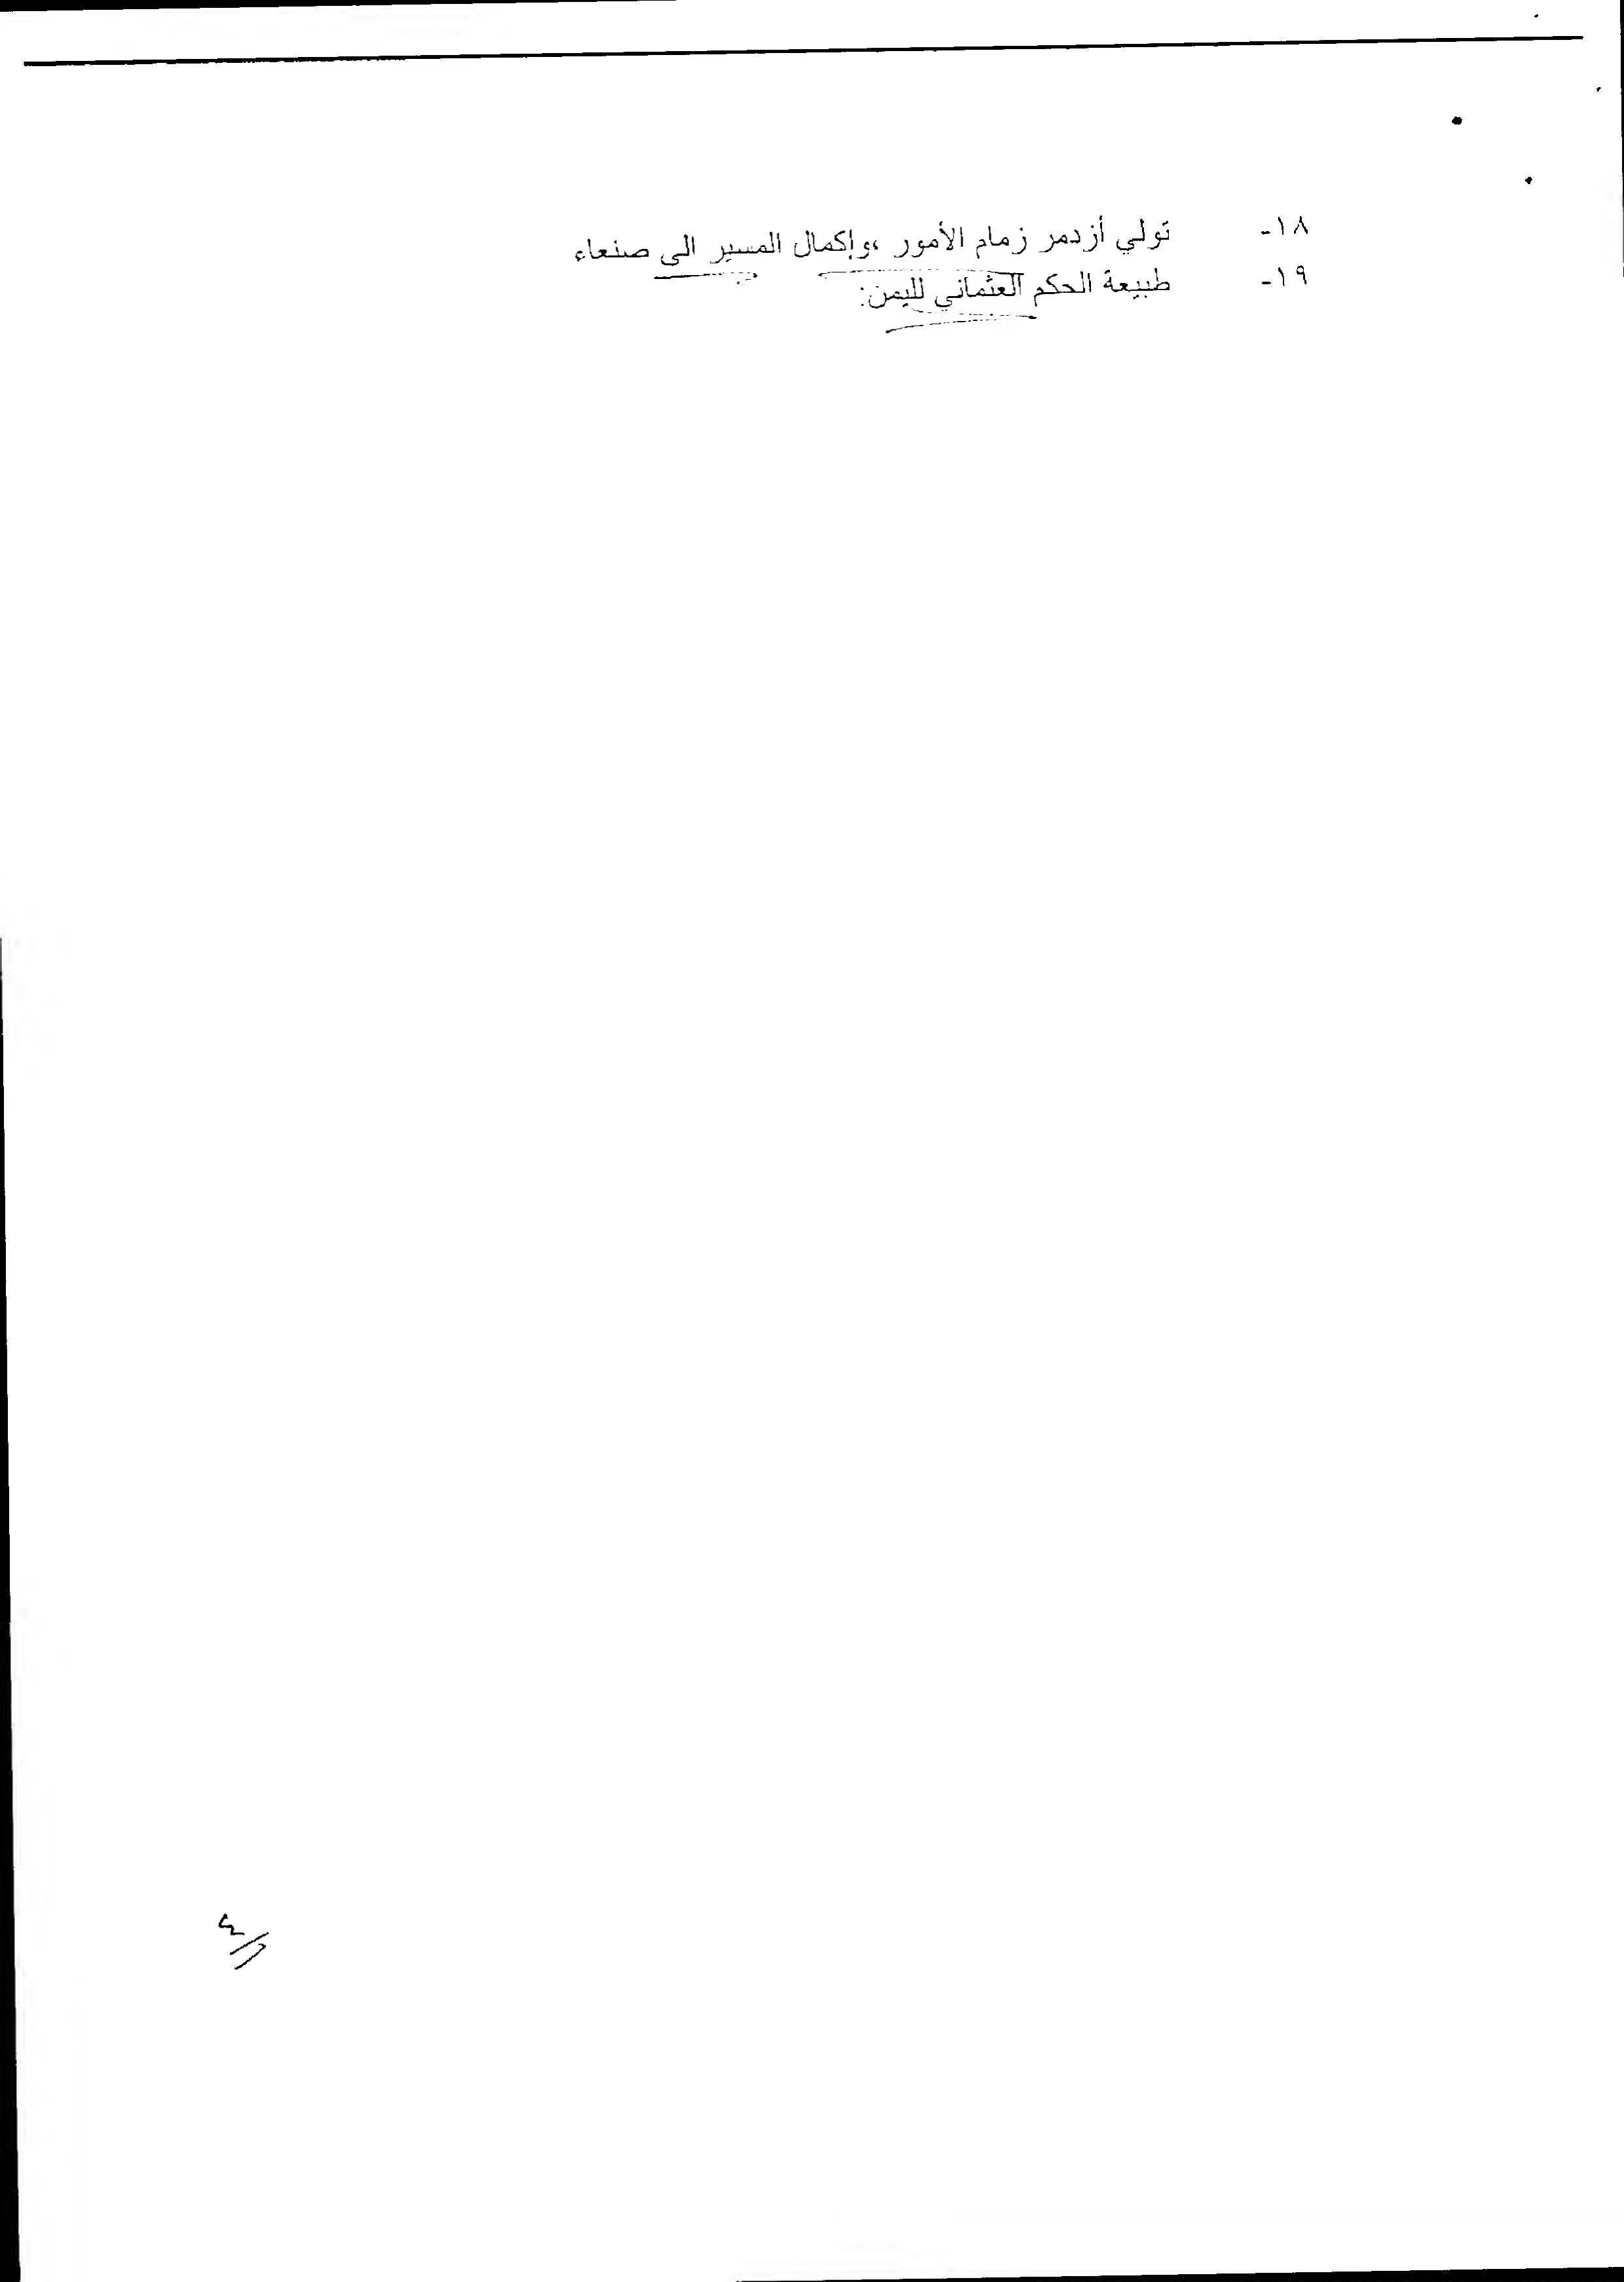 ١٨- تولي أزدمر زمام الأمور ،وإكمال المسير الى صنعاء
١٩- طبيعة الحكم العثماني لليمن: